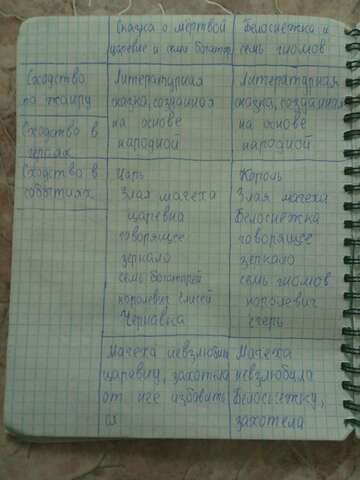 Сказка о мёртвой
царевне и семи богатыр
Белоснежка и
семь гномов
Сходство
по жанру
Литературная
сказка, созданная
на основе
народной
Литературная
сказка, созданная
на основе
народной
Сходство в
героях
Сходство в
событиях
Царь
Злая мачеха
царевна
говорящее
зеркало
семь богатырей
королевич Елисей
Чернавка
Король
Злая мачеха
Белоснежка
говорящее
зеркало
семь гномов
королевич
егерь
Мачеха невзлюбила
царевну, захотела
от неё азбавить
ся
Мачеха
невзлюбила
Белосьежку,
захотела